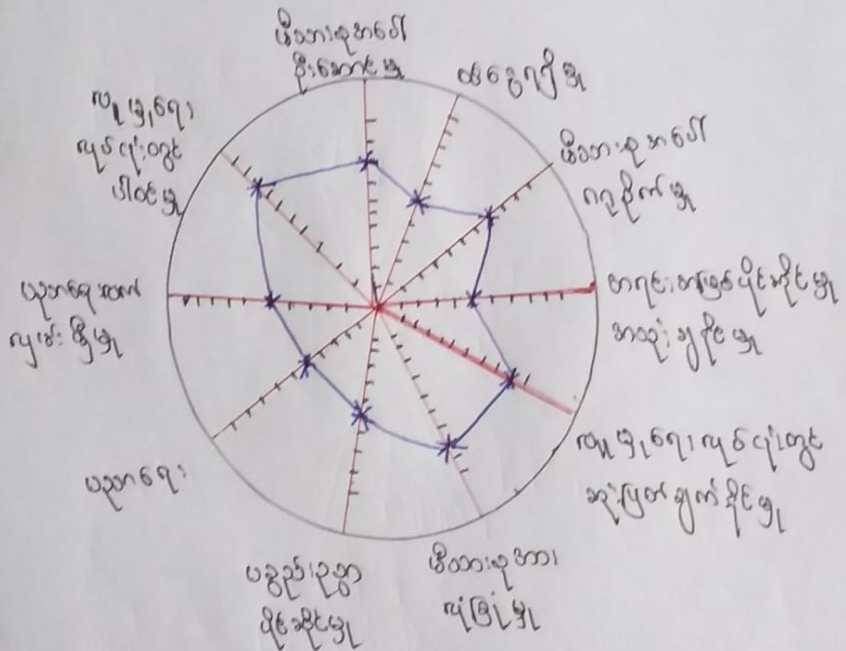 မိသားစုအပေါ်
ဦးဆောင်မှု
ထင်ရှားမှု
မိသားစုအပေါ်
ဂရုစိုက်မှု
အရင်းအမြစ်ပိုင်ဆိုင်မှု
အသုံးချနိုင်မှု
လူမှုရေးလုပ်ငန်းတွင်
ဆုံးဖြတ်ချက်နိုင်မှု
မိသားစုအား
လုံခြုံမှု
ပစ္စည်းဥစ္စာ
ပိုင်ဆိုင်မှု
ပညာရေး
ပညာရေးထောက်
လှမ်းမှီမှု
လူမှုရေး
လုပ်ငန်းတွင်
ပါဝင်မှု